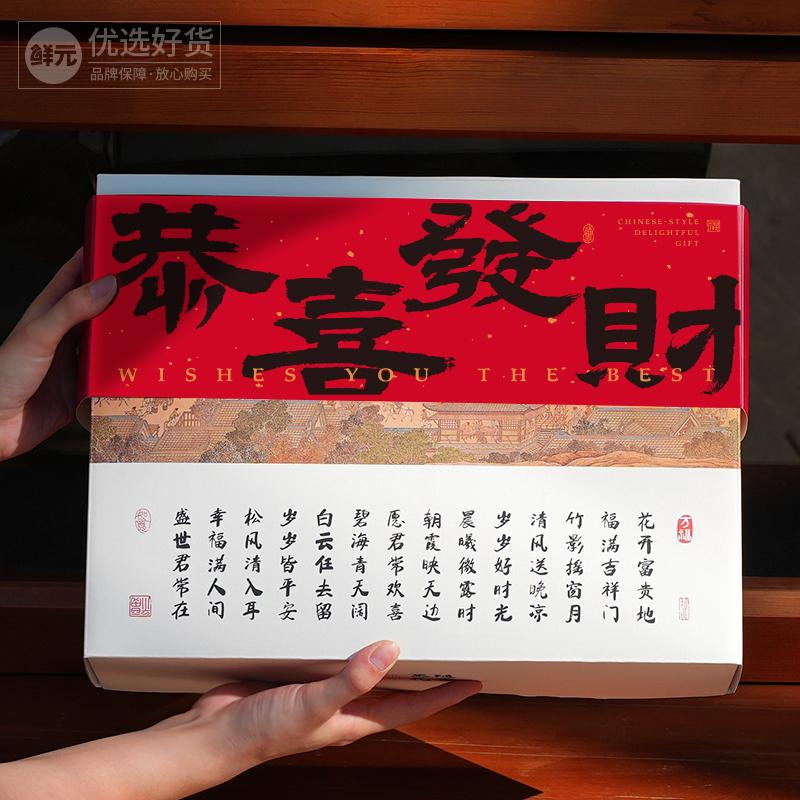 鲜元
优选好货
品牌保障·放心购买
恭喜發財
CHINESE-STYLE
DELIGHTFUL
GIFT
WISHES YOU THE BEST
花开富贵地
福满吉祥门
竹影摇窗月
清风送晚凉
岁岁好时光
晨曦微露时
朝霞映天边
愿君常欢喜
碧海青天阔
白云任去留
岁岁皆平安
松风清入耳
幸福满人间
盛世君常在